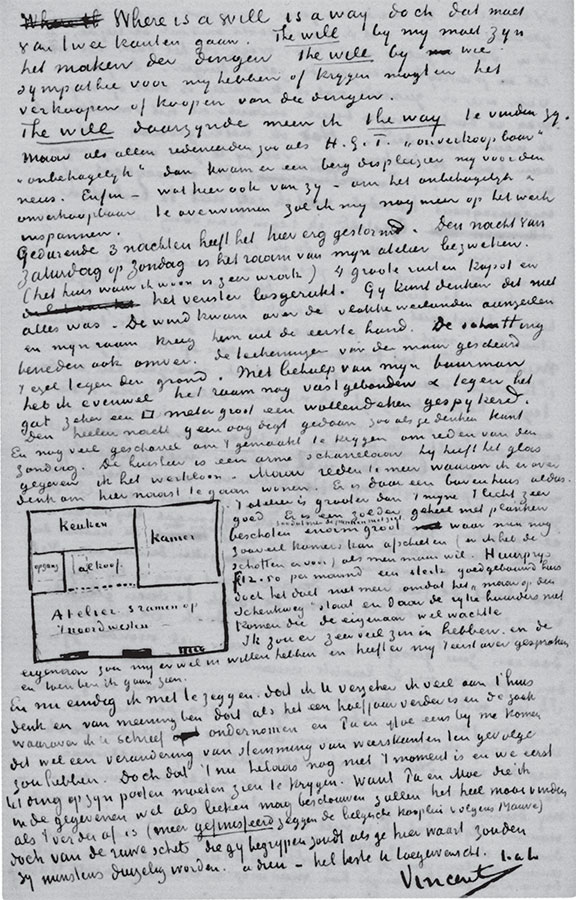 Where is a will is a way doch dat moet
van twee kanten gaan. The will by my moet zyn
het maken der dingen the will by wie
sympathie voor my hebben of krygen mogten het
verkoopen of koopen van die dingen.
The will daarzynde meen ik the way te vinden zy.
Maar als allen redeneerden zooals H.G.T. „onverkoopbaar"
„onbehagelyk" dan kwam er een berg displezier my voor den
neus. Enfin – wat hier ook van zy – om het onbehagelyk &
onverkoopbaar te overwinnen zal ik my nog meer op het werk
inspannen.
Gedurende 3 nachten heeft het hier erg gestormd. Den nacht van
Zaturdag op Zondag is het raam van myn atelier bezweken.
(het huis waar ik woon is zeer wrak) 4 groote ruiten kapot en
het venster losgerukt. Gy kunt denken dit niet
alles was. De wind kwam over de vlakke weilanden aanzeilen
en myn raam kreeg hem uit de eerste hand. De schutting
beneden ook omver. de teekeningen van de muur gescheurd
't ezel tegen den grond. Met behulp van myn buurman
heb ik evenwel het raam nog vastgebonden & tegen het
gat zeker een □ meter groot een wollendeken gespykerd.
Den heelen nacht geen oog digt gedaan zooals ge denken kunt
En nog veel gescharrel om 't gemaakt te krygen om reden van den
Zondag. De huisheer is een arme scharrelaar hy heeft het glas
gegeven ik het werkloon. – Maar reden te meer waarom ik er over
denk om hier naast te gaan wonen. Er is daar een bovenhuis aldus.
't atelier is grooter dan 't myne 't licht zeer
goed Er is een zolder geheel met planken
beschoten zoodat men de pannen niet ziet
enorm groot waar men nog
zooveel kamers kan afschieten (en ik heb de
schotten er voor) als men maar wil. Huurprys
f 12.50 per maand een sterk goed gebouwd huis
doch het doet niet meer omdat het „maar op den
Schenkweg" staat en daar de ryke huurders niet
komen die de eigenaar wel wachtte
Ik zou er zeer veel zin in hebben. en de
eigenaar zou my er wel in willen hebben en heeft er my 't eerst over gesproken
en toen ben ik gaan zien.
Keuken
Kamer
opgang
alkoof.
Atelier 3 ramen op
't noordwesten
En nu eindig ik met te zeggen. dat ik U verzeker ik veel aan 't huis
denk en van meening ben dat als het een half jaar verder is in de zaak
waarover ik U schreef ondernomen en Pa en Moe eens by me komen
dit wel een verandering van stemming van weerskanten ten gevolge
zou hebben. Doch dat 't nu helaas nog niet 't moment is en we eerst
't ding op zyn pooten moeten zien te krygen. Want Pa en Moe die ik
in de gegeven wel als leeken mag beschouwen zullen het heel mooi vinden
als 't verder af is (meer gefinisseerd zeggen de belgische kooplui volgens Mauve)
doch van de ruwe schets die gy begrypen zoudt als ge hier waart zouden
zy minstens duizelig worden. adieu – het beste U toegewenscht.
Vincent